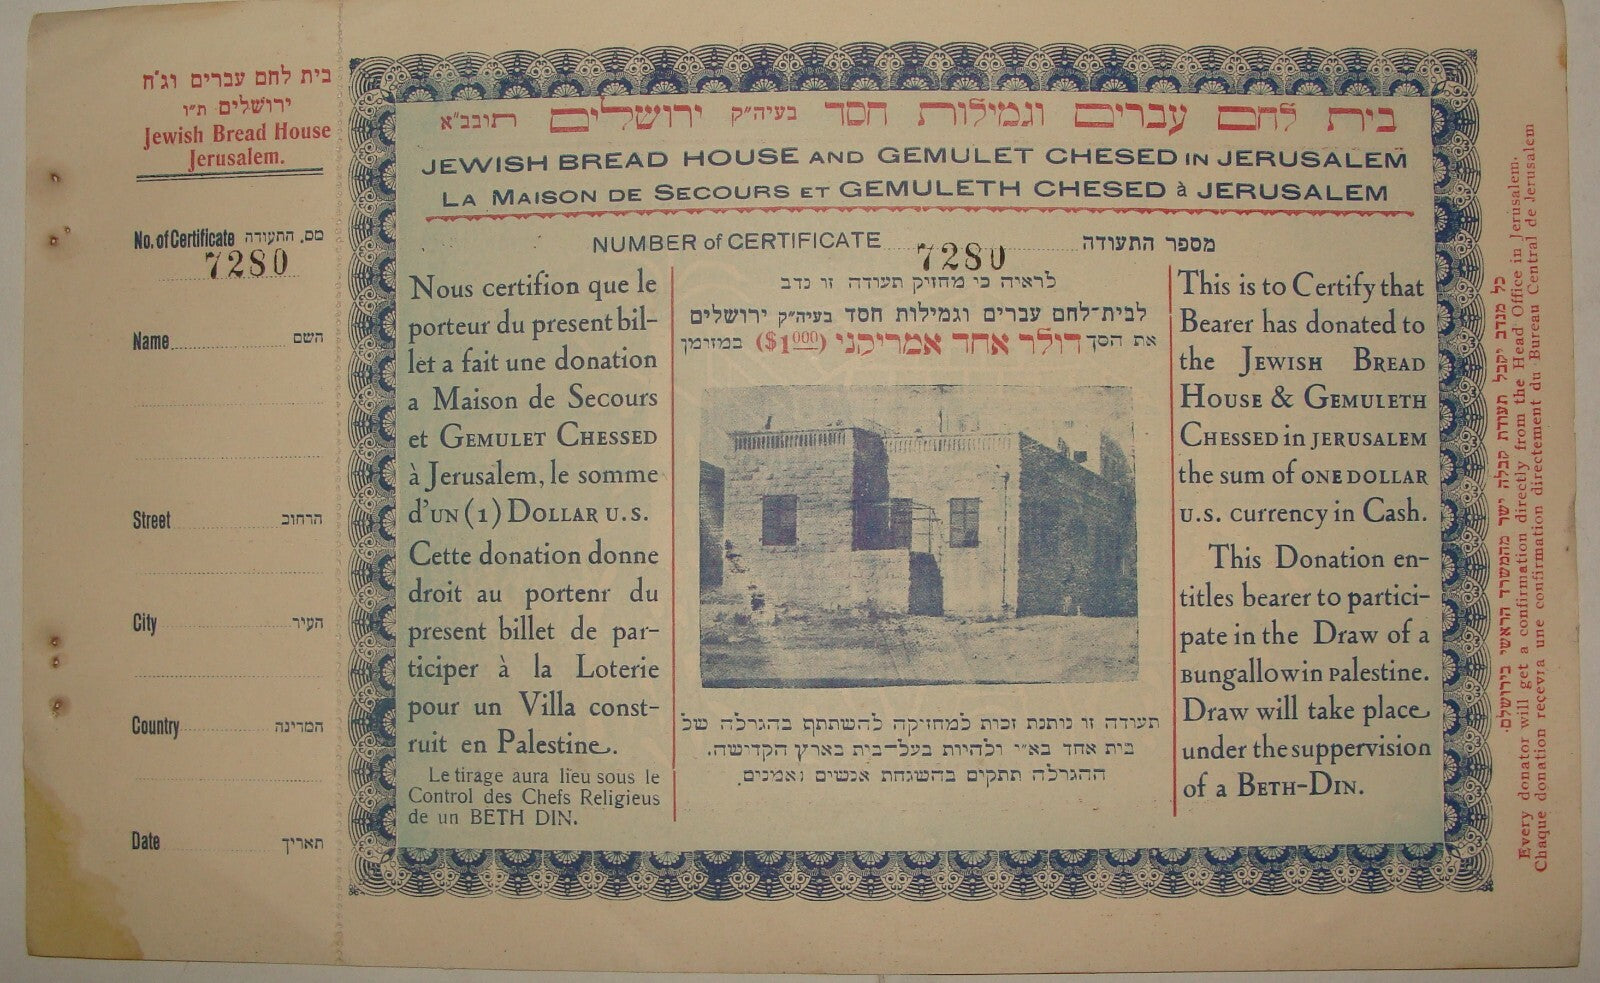 בית לחם עברים וג"ח
ירושלים ת"ו
Jewish Bread House
Jerusalem.
No. of Certificate מס. התעודה
7280
Name השם
Street הרחוב
City העיר
Country המדינה
Date תאריך
בית לחם עברים וגמילות חסד בעיה"ק ירושלים תובב"א
JEWISH BREAD HOUSE AND GEMULET CHESED IN JERUSALEM
LA MAISON DE SECOURS ET GEMULETH CHESED à JERUSALEM
NUMBER of CERTIFICATE 7280 מספר התעודה
Nous certifion que le
porteur du present bil-
let a fait une donation
a Maison de Secours
et GEMULET CHESSED
à Jerusalem, le somme
d'UN (1) DOLLAR U.S.
Cette donation donne
droit au portenr du
present billet de par-
ticiper à la Loterie
pour un Villa const-
ruit en Palestine.
Le tirage aura lieu sous le
Control des Chefs Religieus
de un BETH DIN.
לראיה כי מחזיק תעודה זו נדב
לבית-לחם עברים וגמילות חסד בעיה"ק ירושלים
את הסך דולר אחד אמריקני ($1.000) במזומן
תעודה זו נותנת זכות למחזיקה להשתתף בהגרלה של
בית אחד בא"י ולהיות בעל-בית בארץ הקדישה.
ההגרלה תתקים בהשגחת אנשים נאמנים.
This is to Certify that
Bearer has donated to
the JEWISH BREAD
HOUSE & GEMULETH
CHESSED in JERUSALEM
the sum of ONE DOLLAR
U.S. currency in Cash.
This Donation en-
titles bearer to partici-
pate in the Draw of a
Bungallow in Palestine.
Draw will take place
under the suppervision
of a BETH-DIN.
כל מנדב יקבל תעודת קבלה ישר מהמשרד הראשי בירושלם.
Every donator will get a confirmation directly from the Head Office in Jerusalem.
Chaque donation reçevra une confirmation directement du Bureau Central de Jerusalem